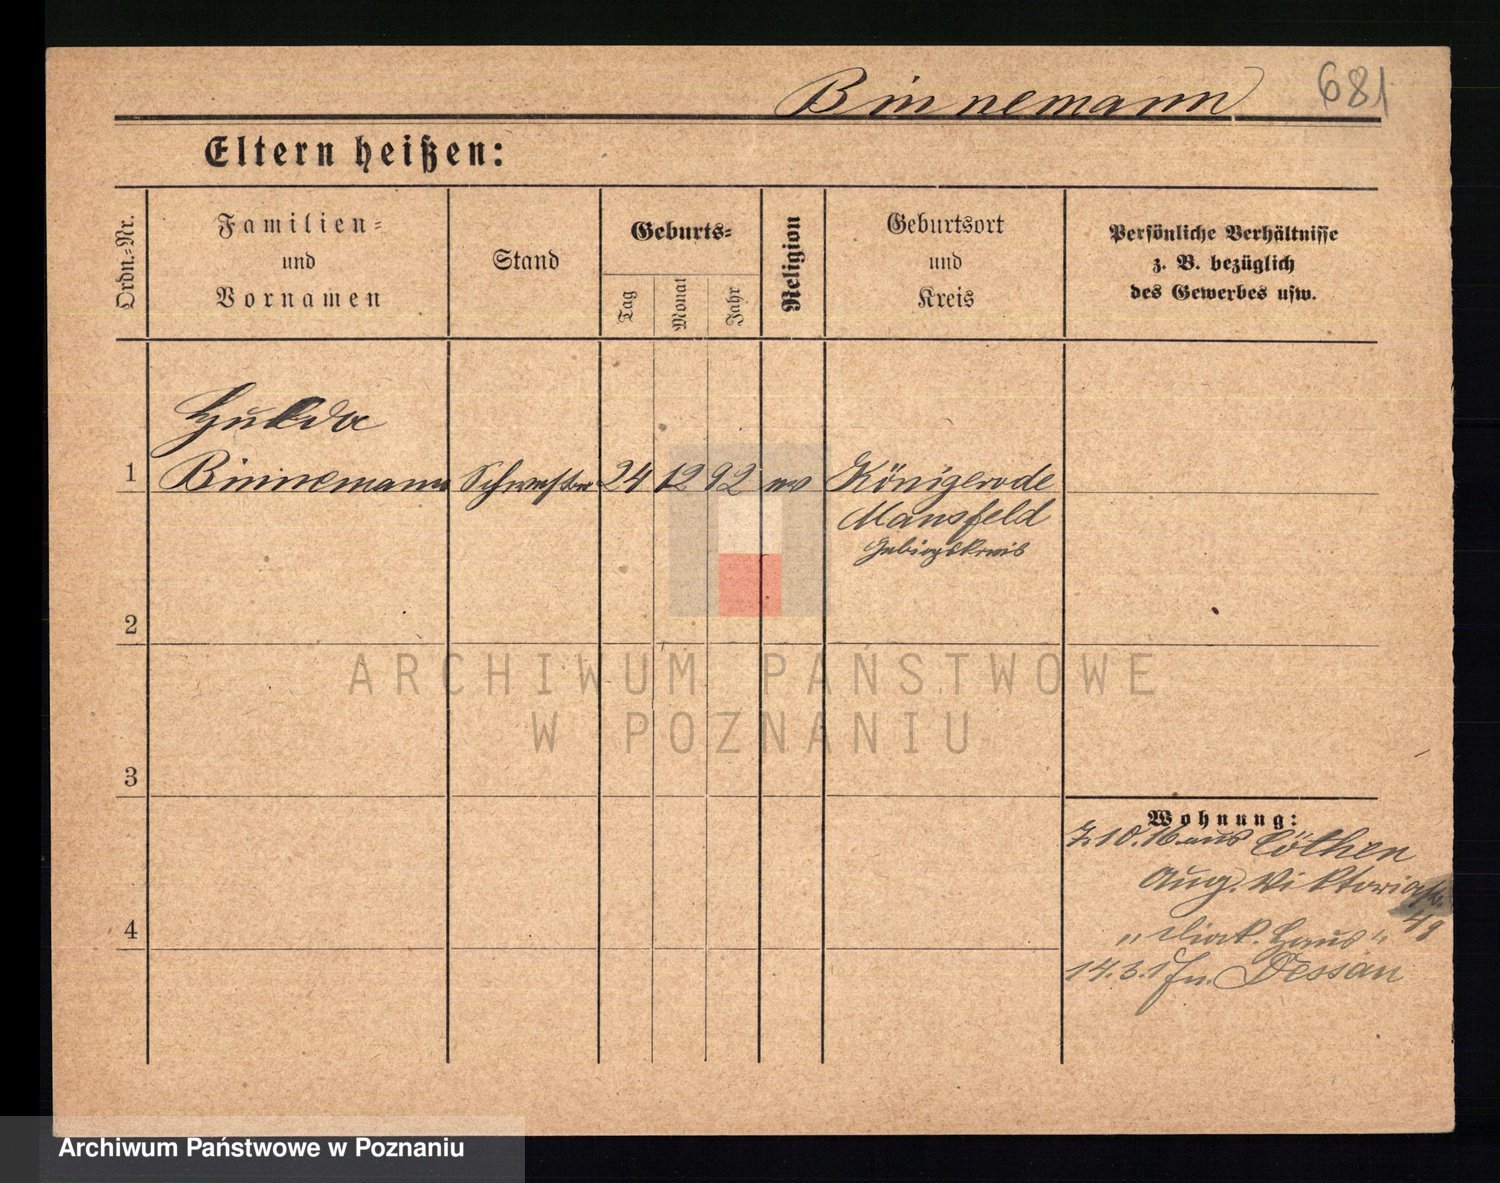 Binnemann 681
Eltern heißen:
Ordn.-Nr.
Familien-
und
Vornamen
Stand
Geburts-
Tag
Monat
Jahr
Religion
Geburtsort
und
Kreis
Persönliche Verhältnisse
z. B. bezüglich
des Gewerbes usw.
Hulda
1 Binnemann Schwester 24 12 92 ev Königerode
Mansfeld
Gebirgskreis
2
ARCHIWUM PAŃSTWOWE
W POZNANIU
3
Wohnung:
7.10.16 aus Cöthen
Aug. Viktoriastr.
49
"Diak. Haus"
4
14.3.17 n. Dessau
Archiwum Państwowe w Poznaniu